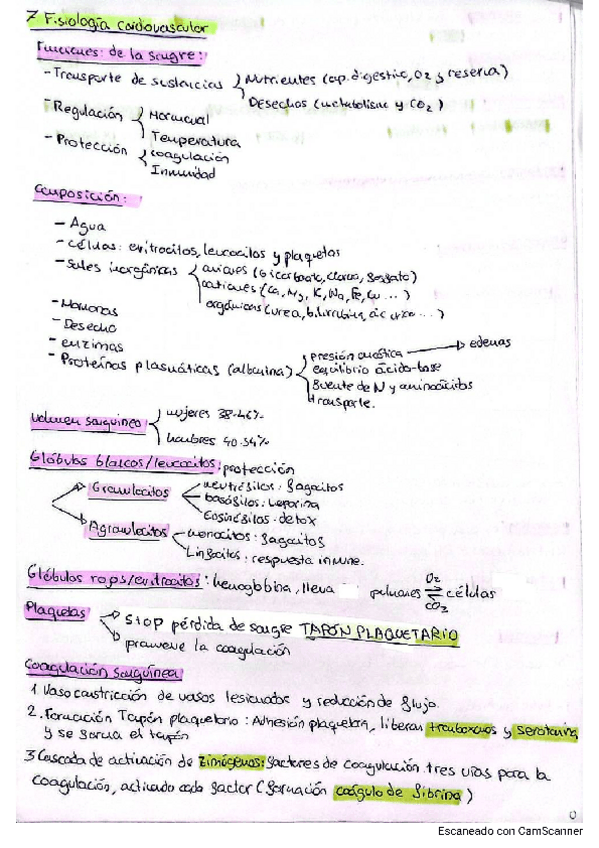 7 Fisiología cardiovascular
Funciones de la sangre:
- Transporte de sustancias { Nutrientes (ap. digestivo, O2 y reserva)
Desechos (metabolismo y CO2)
- Regulación { Hormonal
Temperatura
- Protección { coagulación
Inmunidad
Composición:
- Agua
- células: eritrocitos, leucocitos y plaquetas
- Sales inorgánicas { aniones (bicarbonato, cloruro, fosfato)
cationes (Ca, Mg, K, Na, Fe, Cu ...)
orgánicas (urea, bilirrubina, ác úrico ...)
- Hormonas
- Desecho
- enzimas
- Proteínas plasmáticas (albumina) { presión oncótica → edemas
equilibrio ácido-base
fuente de N y aminoácidos
transporte.
Volumen sanguíneo { mujeres 38-46%
hombres 40-54%
Glóbulos blancos/leucocitos: protección
Granulocitos neutrófilos: fagocitos
basófilos: heparina
Eosinófilos: detox
Agranulocitos monocitos: fagocitos
Linfocitos: respuesta inmune.
Glóbulos rojos/eritrocitos: hemoglobina, lleva pulmones O2 ⇌ CO2 células
Plaquetas → Stop pérdida de sangre TAPÓN PLAQUETARIO
promueve la coagulación
Coagulación sanguínea
1. Vasoconstricción de vasos lesionados y reducción de flujo.
2. Formación Tapón plaquetario: Adhesión plaquetaria, liberan tromboxanos y serotonina
y se forma el tapón
3 Cascada de activación de zimógenos: factores de coagulación tres vías para la
coagulación, activado cada factor (formación coágulo de fibrina)
Escaneado con CamScanner